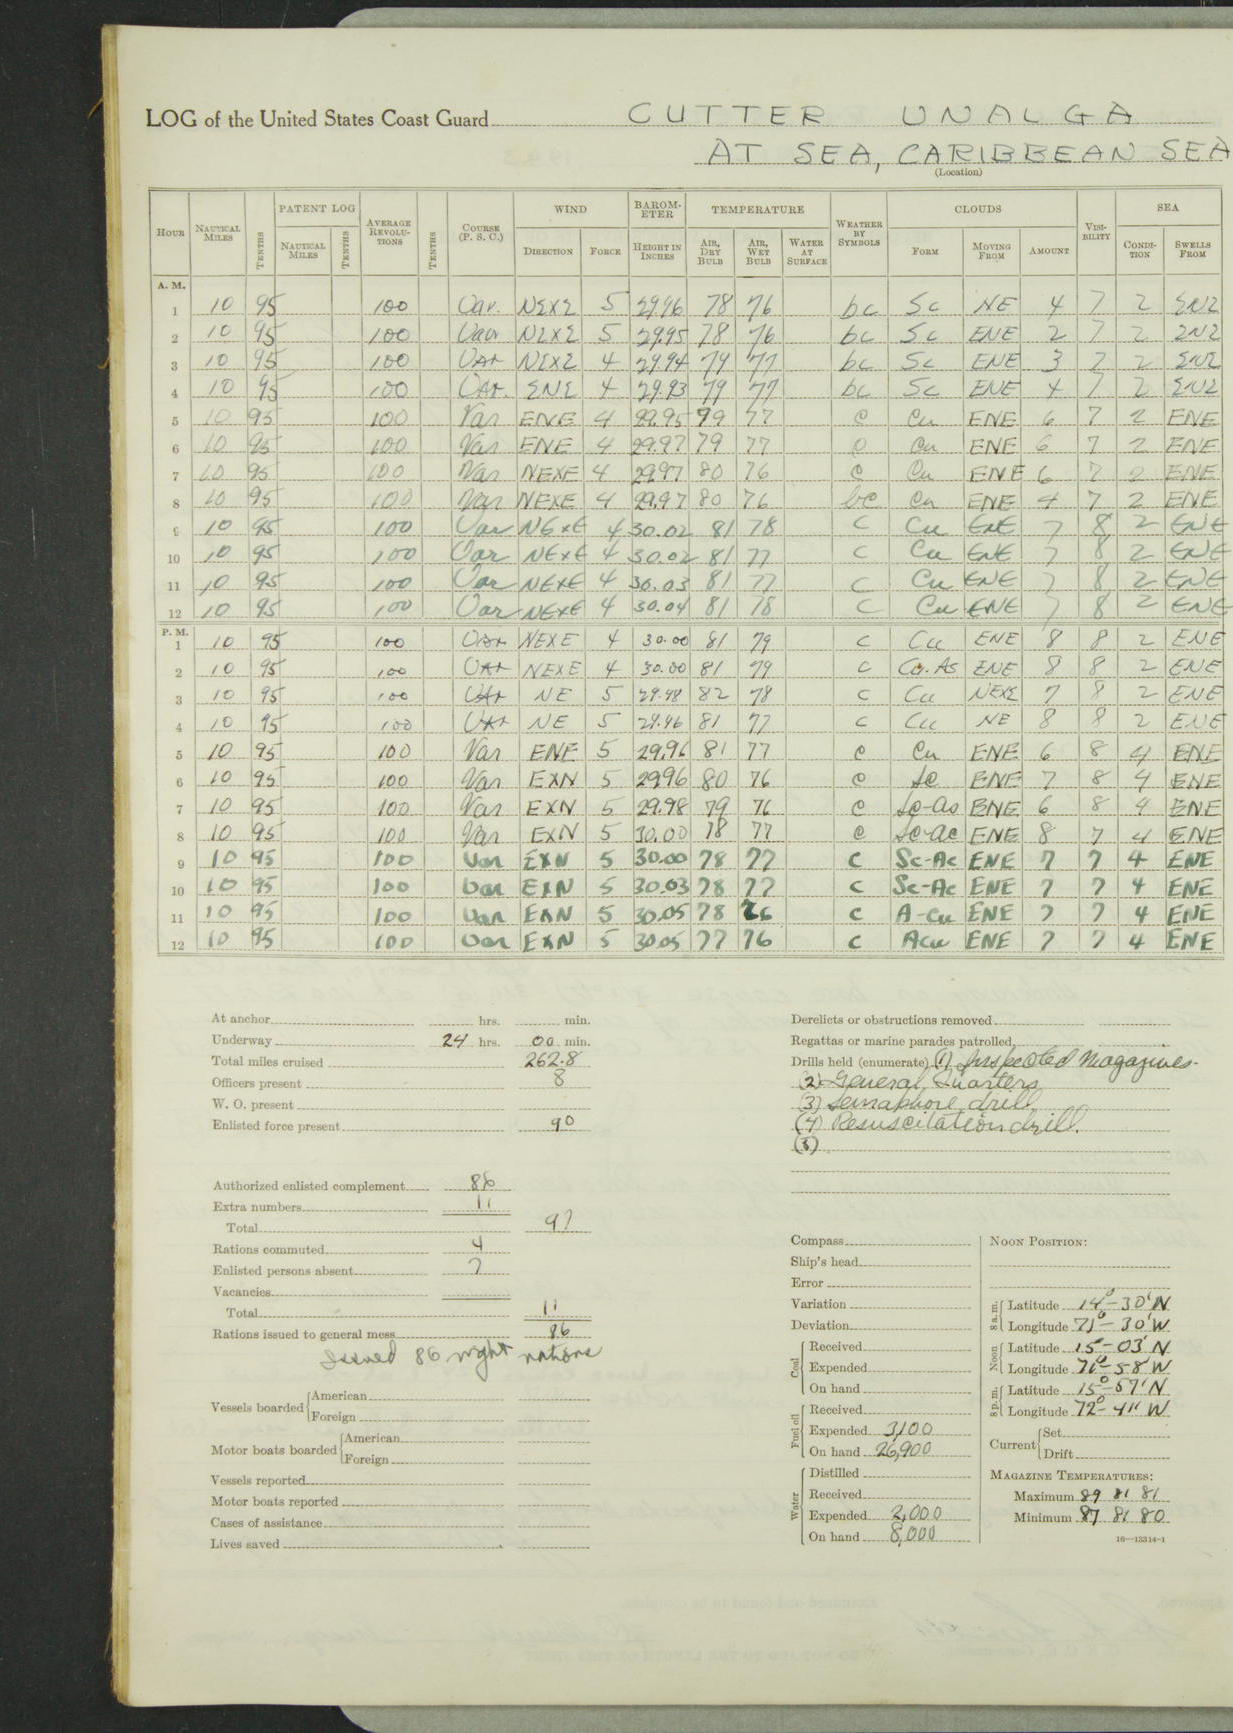 LOG of the United States Coast Guard CUTTER UNALGA
AT SEA, CARIBBEAN SEA
(Location)
HOUR NAUTICAL MILES TENTHS PATENT LOG NAUTICAL MILES TENTHS AVERAGE REVOLUTIONS TENTHS COURSE (P. S. C.) WIND DIRECTION FORCE BAROMETER HEIGHT IN INCHES TEMPERATURE AIR, DRY BULB AIR, WET BULB WATER AT SURFACE WEATHER BY SYMBOLS CLOUDS FORM MOVING FROM AMOUNT VISIBILITY SEA CONDITION SWELLS FROM
A. M.
1 10 95 100 Var. NEXE 5 29.96 78 76 bc Sc NE 4 7 2 ENE
2 10 95 100 Var NEXE 5 29.95 78 76 bc Sc ENE 2 7 2 ENE
3 10 95 100 Var NEXE 4 29.94 79 77 bc Sc ENE 3 7 2 ENE
4 10 95 100 Var ENE 4 29.93 79 77 bc Sc ENE 4 7 2 ENE
5 10 95 100 Var ENE 4 29.95 79 77 c Cu ENE 6 7 2 ENE
6 10 95 100 Var ENE 4 29.97 79 77 c Cu ENE 6 7 2 ENE
7 10 95 100 Var NEXE 4 29.97 80 76 c Cu ENE 6 7 2 ENE
8 10 95 100 Var NEXE 4 29.97 80 76 bc Cu ENE 4 7 2 ENE
9 10 95 100 Var NEXE 4 30.02 81 78 C Cu ENE 7 8 2 ENE
10 10 95 100 Var NEXE 4 30.02 81 77 C Cu ENE 7 8 2 ENE
11 10 95 100 Var NEXE 4 30.03 81 77 C Cu ENE 7 8 2 ENE
12 10 95 100 Var NEXE 4 30.04 81 78 C Cu ENE 7 8 2 ENE
P. M.
1 10 95 100 Var NEXE 4 30.00 81 79 c Cu ENE 8 8 2 ENE
2 10 95 100 Var NEXE 4 30.00 81 79 c Cu. As ENE 8 8 2 ENE
3 10 95 100 Var NE 5 29.98 82 78 c Cu NEXE 7 8 2 ENE
4 10 95 100 Var NE 5 29.96 81 77 c Cu NE 8 8 2 ENE
5 10 95 100 Var ENE 5 29.96 81 77 c Cu ENE 6 8 4 ENE
6 10 95 100 Var EXN 5 29.96 80 76 c Sc ENE 7 8 4 ENE
7 10 95 100 Var EXN 5 29.98 79 76 c Sc-As ENE 6 8 4 ENE
8 10 95 100 Var EXN 5 30.00 78 77 c Sc-Ac ENE 8 7 4 ENE
9 10 95 100 Var EXN 5 30.00 78 77 c Sc-Ac ENE 7 7 4 ENE
10 10 95 100 Var EXN 5 30.03 78 77 c Sc-Ac ENE 7 7 4 ENE
11 10 95 100 Var EXN 5 30.05 78 76 c A-Cu ENE 7 7 4 ENE
12 10 95 100 Var EXN 5 30.05 77 76 c Acu ENE 7 7 4 ENE
At anchor hrs. min.
Underway 24 hrs. 00 min.
Total miles cruised 262.8
Officers present 8
W. O. present
Enlisted force present 90
Authorized enlisted complement 86
Extra numbers 11
Total 97
Rations commuted 4
Enlisted persons absent 7
Vacancies
Total 11
Rations issued to general mess 86
Issued 86 night rations
Vessels boarded American
Foreign
Motor boats boarded American
Foreign
Vessels reported
Motor boats reported
Cases of assistance
Lives saved
Derelicts or obstructions removed
Regattas or marine parades patrolled
Drills held (enumerate) (1) Inspected Magazines
(2) General Quarters
(3) Semaphore drill
(4) Resuscitation drill.
(5)
Compass
Ship's head
Error
Variation
Deviation
Coal Received
Expended
On hand
Fuel oil Received
Expended 3,100
On hand 26,900
Water Distilled
Received
Expended 2,000
On hand 8,000
NOON POSITION:
8 a.m. Latitude 14°-30' N
Longitude 71°-30' W
Noon Latitude 15°-03' N
Longitude 71°-58' W
8 p.m. Latitude 15°-57' N
Longitude 72°-41' W
Current Set
Drift
MAGAZINE TEMPERATURES:
Maximum 89 81 81
Minimum 87 81 80
16—13314-1